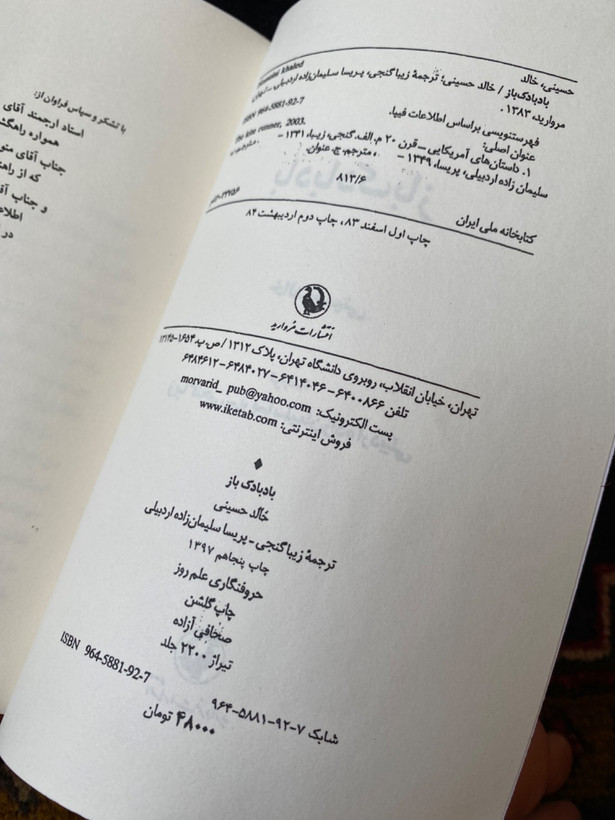 با تشکر و سپاس فراوان از:
استاد ارجمند آقای
همواره راهگ
جناب آقای منو
که از راهن
و جناب آق
اطلا
در
حسینی، خالد
khaled
بادبادک‌باز / خالد حسینی؛ ترجمهٔ زیبا گنجی، پریسا سلیمان‌زاده اردبیلی.
مروارید، ۱۳۸۳.
ISBN 964-5881-92-7
فهرستنویسی براساس اطلاعات فیپا.
عنوان اصلی: The kite runner, 2003.
۱. داستان‌های آمریکایی – قرن ۲۰ م. الف. گنجی، زیبا، ۱۳۴۱ –
سلیمان زاده اردبیلی، پریسا، ۱۳۴۹ – ، مترجم. ج. عنوان.
۸۱۳/۶
کتابخانه ملی ایران
چاپ اول اسفند ۸۳، چاپ دوم اردیبهشت ۸۴
انتشارات مروارید
تهران، خیابان انقلاب، روبروی دانشگاه تهران، پلاک ۱۳۱۲ / ص پ ۱۶۵۴–۱۳۱۴۵
تلفن ۶۴۰۰۸۶۶–۶۴۱۴۰۴۶–۶۴۸۴۰۲۷–۶۴۸۴۶۱۲
پست الکترونیک: morvarid_ pub@yahoo.com
فروش اینترنتی: www.iketab.com
بادبادک باز
خالد حسینی
ترجمهٔ زیبا گنجی – پریسا سلیمان‌زاده اردبیلی
چاپ پنجاهم ۱۳۹۷
حروفنگاری علم روز
چاپ گلشن
صحافی آزاده
تیراژ ۲۲۰۰ جلد
ISBN 964-5881-92-7
شابک ۷–۹۲–۵۸۸۱–۹۶۴
۴۸۰۰۰ تومان